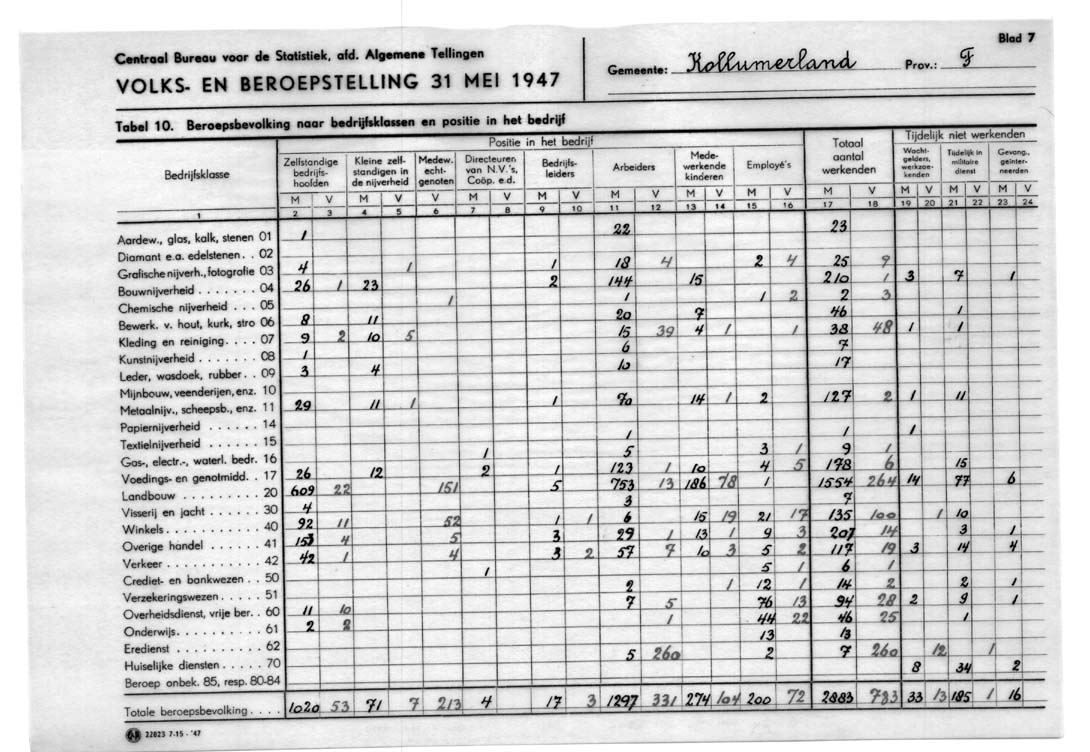 Blad 7
Centraal Bureau voor de Statistiek, afd. Algemene Tellingen
VOLKS- EN BEROEPSTELLING 31 MEI 1947
Gemeente: Kollumerland Prov.: F
Tabel 10. Beroepsbevolking naar bedrijfsklassen en positie in het bedrijf
Bedrijfsklasse
Positie in het bedrijf
Zelfstandige bedrijfs-hoofden
Kleine zelf-standigen in de nijverheid
Medew. echt-genoten
Directeuren van N.V.'s, Coöp. e.d.
Bedrijfs-leiders
Arbeiders
Mede-werkende kinderen
Employé's
Totaal aantal werkenden
Tijdelijk niet werkenden
Wacht-gelders, werkzoe-kenden
Tijdelijk in militaire dienst
Gevang., geïnter-neerden
M V M V V M V M V M V M V M V M V M V M V M V
1 2 3 4 5 6 7 8 9 10 11 12 13 14 15 16 17 18 19 20 21 22 23 24
Aardew., glas, kalk, stenen 01 1 22 23
Diamant e.a. edelstenen . . 02
Grafische nijverh., fotografie 03 4 1 1 18 4 2 4 25 9
Bouwnijverheid . . . . . . . 04 26 1 23 2 144 15 210 1 3 7 1
Chemische nijverheid . . . 05 1 1 1 2 2 3
Bewerk. v. hout, kurk, stro 06 8 11 20 7 46 1
Kleding en reiniging . . . . 07 9 2 10 5 15 39 4 1 1 38 48 1 1
Kunstnijverheid . . . . . . . 08 1 6 7
Leder, wasdoek, rubber . . 09 3 4 10 17
Mijnbouw, veenderijen, enz. 10
Metaalnijv., scheepsb., enz. 11 29 11 1 1 70 14 1 2 127 2 1 11
Papiernijverheid . . . . . . 14
Textielnijverheid . . . . . . 15 1 1 1
Gas-, electr.-, waterl. bedr. 16 1 5 3 1 9 1
Voedings- en genotmidd. . 17 26 12 2 1 123 1 10 4 5 178 6 15
Landbouw . . . . . . . . . 20 609 22 151 5 753 13 186 78 1 1554 264 14 77 6
Visserij en jacht . . . . . . 30 4 3 7
Winkels . . . . . . . . . . 40 92 11 52 1 1 6 15 19 21 17 135 100 1 10
Overige handel . . . . . . 41 153 4 5 3 29 1 13 1 9 3 207 14 3 1
Verkeer . . . . . . . . . . 42 42 1 4 3 2 57 7 10 3 5 2 117 19 3 14 4
Crediet- en bankwezen . . 50 1 5 1 6 1
Verzekeringswezen . . . . . 51 2 1 12 1 14 2 2 1
Overheidsdienst, vrije ber. . 60 11 10 7 5 76 13 94 28 2 9 1
Onderwijs . . . . . . . . . 61 2 2 1 44 22 46 25 1
Eredienst . . . . . . . . . 62 13 13
Huiselijke diensten . . . . . 70 5 260 2 7 260 12 1
Beroep onbek. 85, resp. 80-84 8 34 2
Totale beroepsbevolking . . . . 1020 53 71 7 213 4 17 3 1297 331 274 104 200 72 2883 783 33 13 185 1 16
22823 7-15 - '47